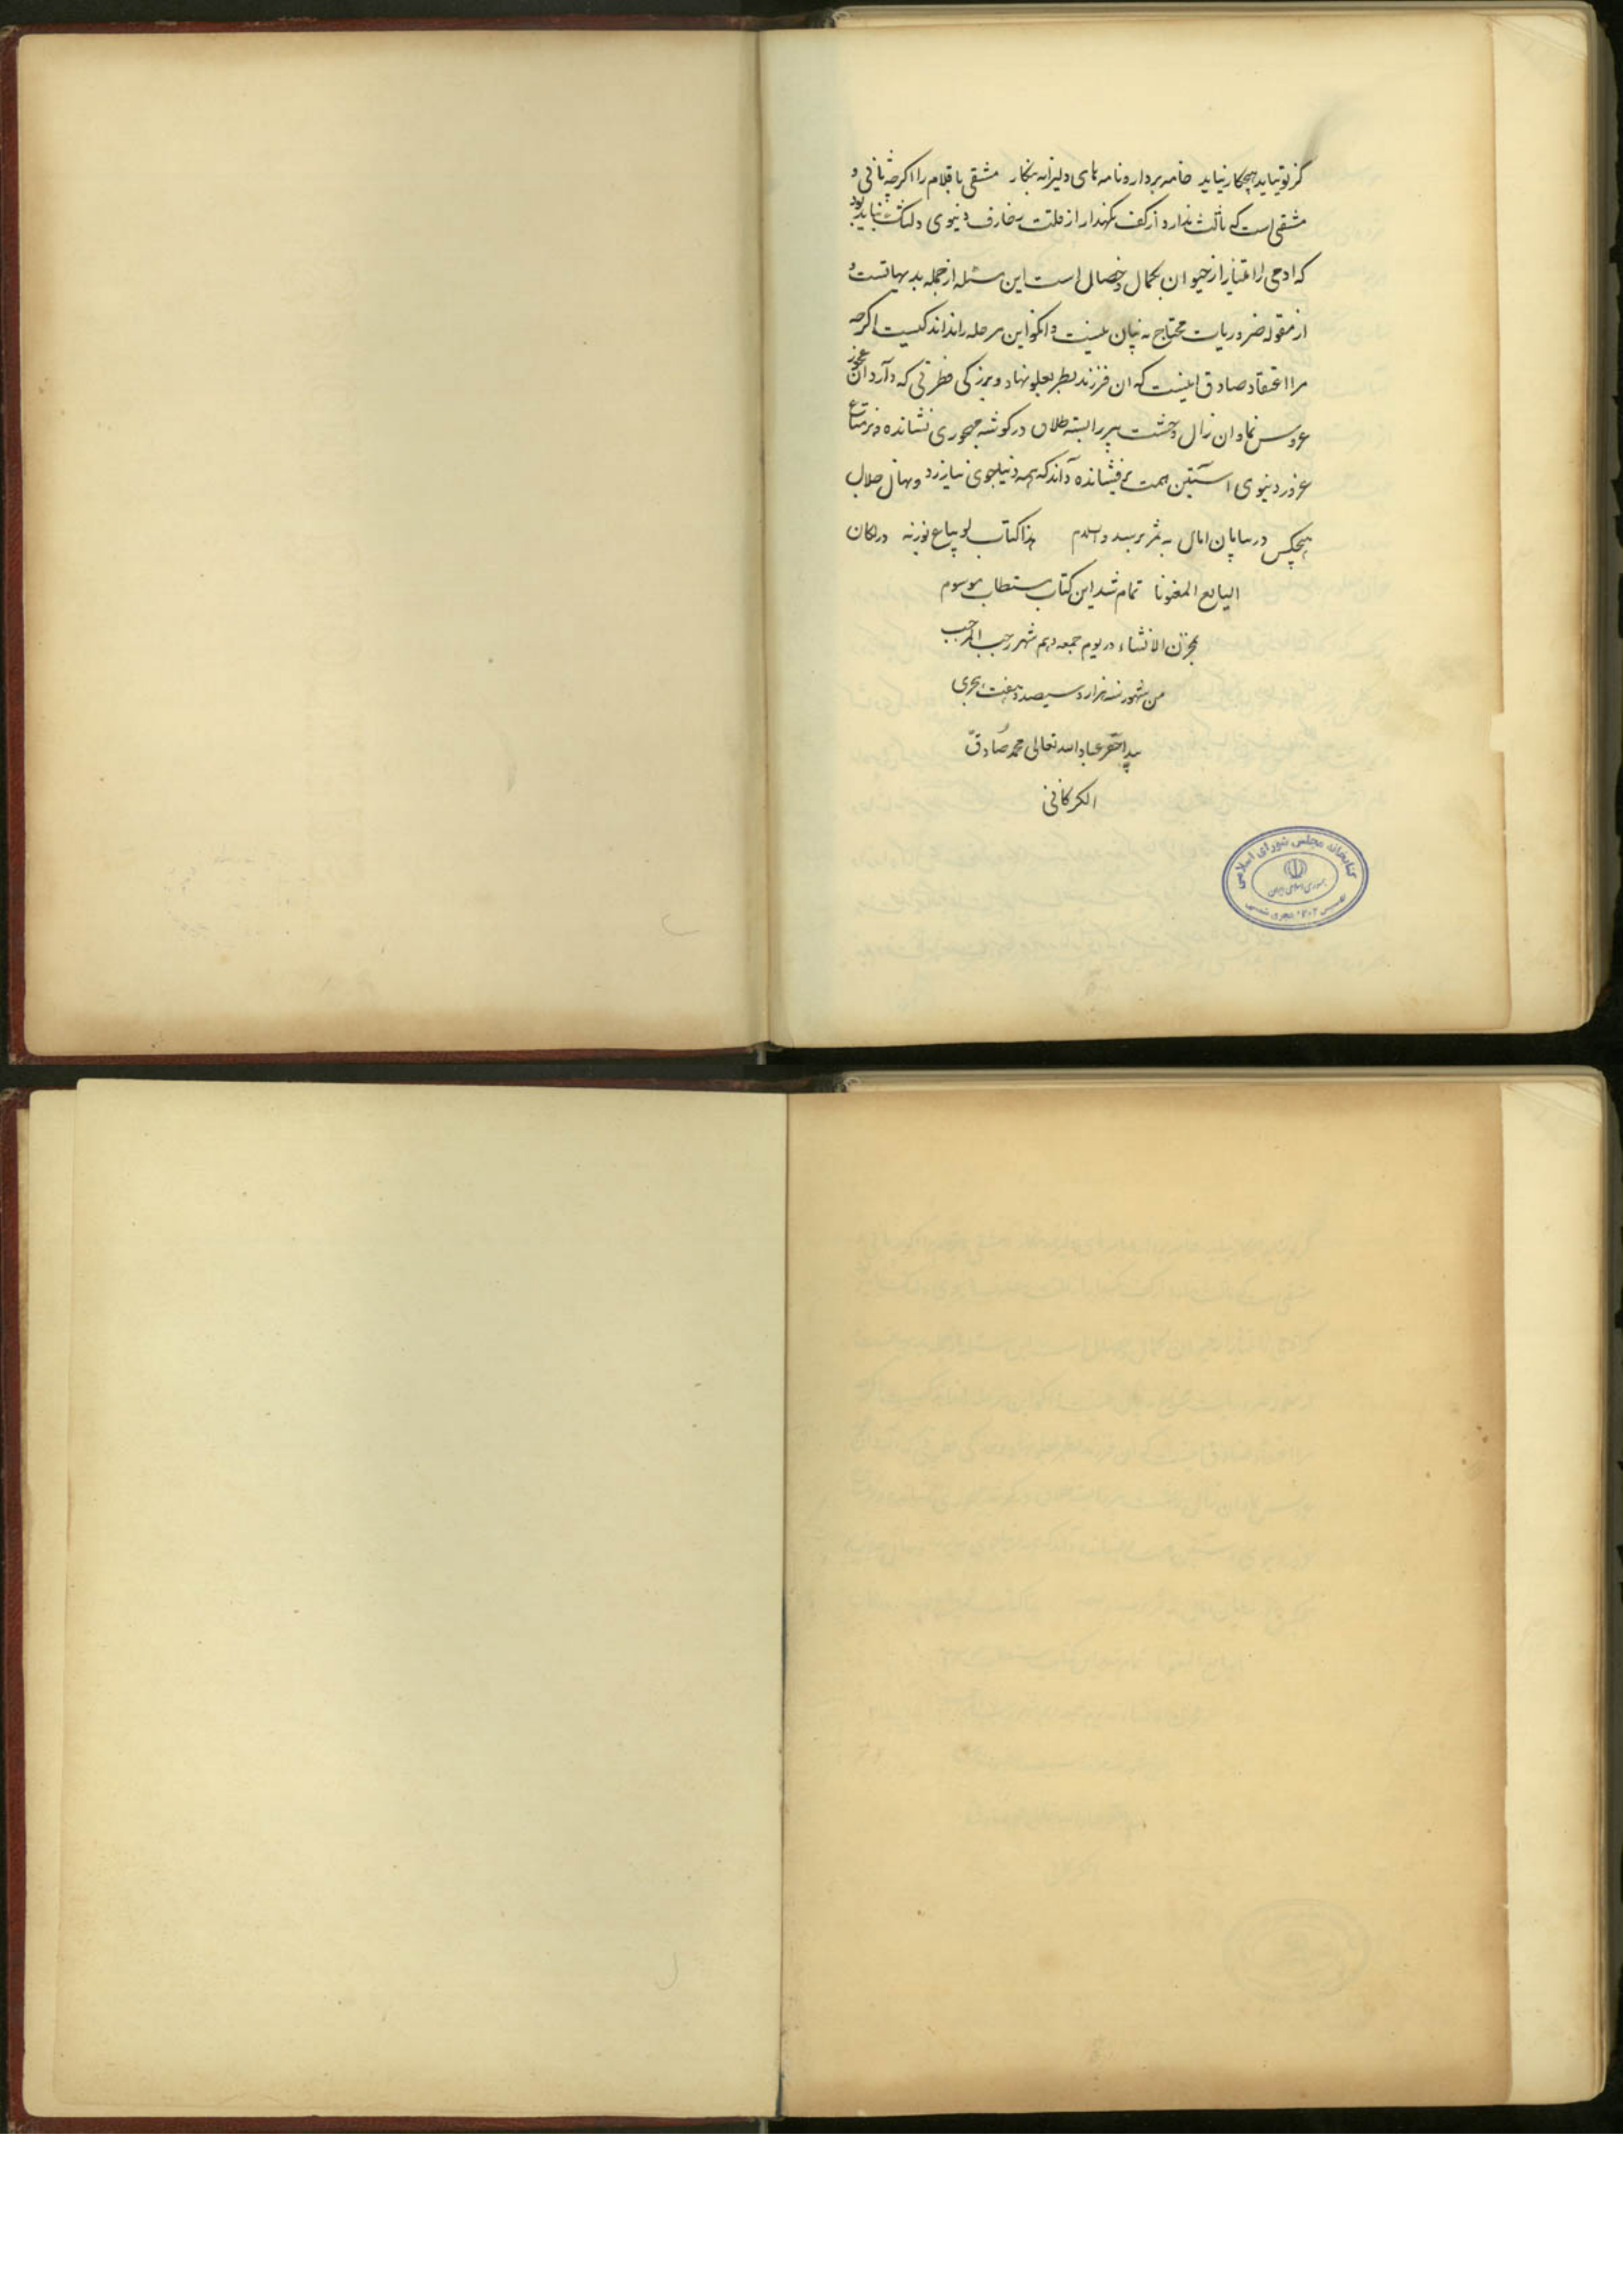 کر تو نیاید هیچکار نیاید خامه بردار و نامه های دلیرانه بنکار مشقی با قلام را اکرچه ثانی و
مشقی است که ثالث ندارد از کف نکهدار از قلت زخارف دنیوی دلتنک نباید بود
که ادمی را امتیاز از حیوان بکمال و خصال است این مسئله از جمله بدیهیاتست و
از مقوله ضروریات محتاج به بیان نیست و انکو این مرحله را نداند کیست اکرچه
مرا اعتقاد صادق اینست که ان فرزند بعلو نهاد و بزرکی فطرتی که دارد ان عجوز
عروس نما و ان زال زشت پیر را بسته طلاق در کوشه مهجوری نشانده و بر متاع
غرور دنیوی استین همت برفشانده داند که همه دنیا بجوی نیارزد و نهال
هیچکس در بیابان امال به ثمر نرسد والسلام هذا کتاب لو یباع بوزنه در لکان
البایع المغبونا تمام شد این کتاب مستطاب موسوم
بمخزن الانشاء در یوم جمعه دهم شهر رجب المرجب
من شهور سنه هزار و سیصد و هفت هجری
بید احقر عباد الله تعالی محمد صادق
الکرکانی
کتابخانه مجلس شورای اسلامی
جمهوری اسلامی ایران
تاسیس ۱۳۰۲ هجری شمسی